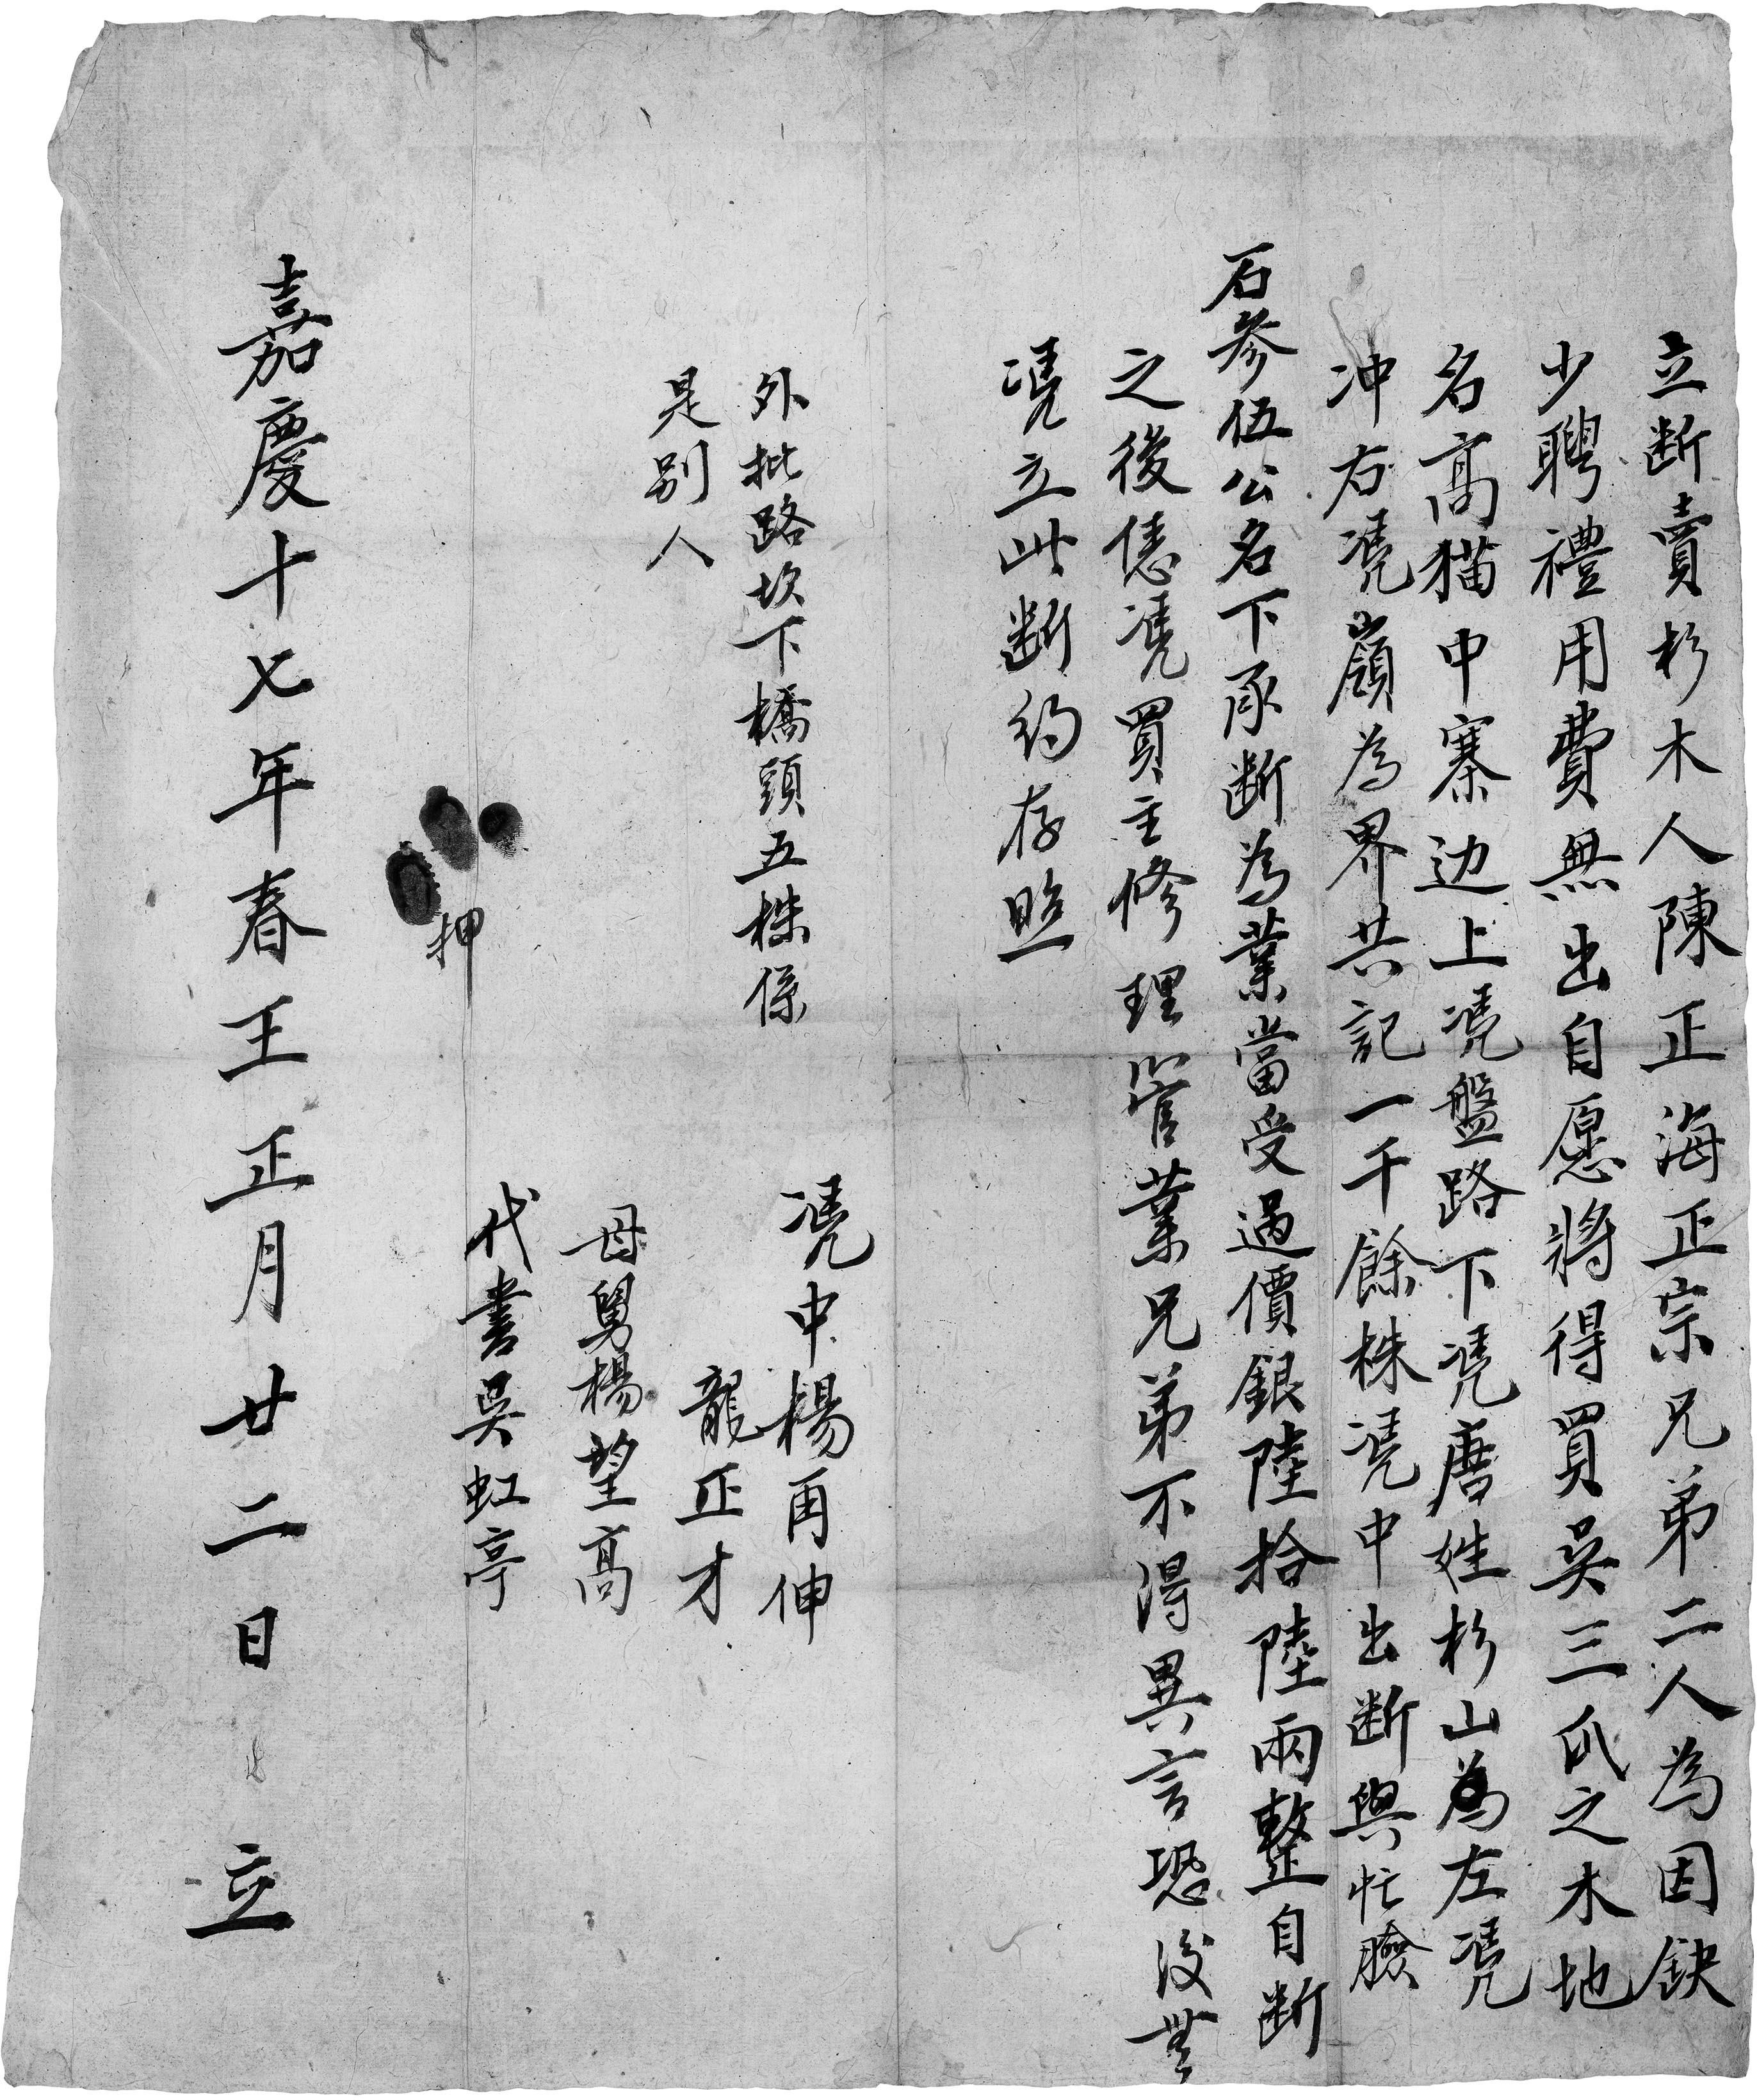 立断賣杉木人陳正海正宗兄弟二人為因缺
少聘禮用費無出自愿將得買吳三爪之木地
名高猫中寨边上凴盤路下凴唐姓杉山為左凴
冲右凴嶺為界共記一千餘株凴中出断與忙臉
石參伍公名下承断為業當受過價銀陸拾陸兩整自断
之後凴買主修理管業兄弟不得異言恐後無
凴立此断約存照
外批路坎下橋頭五株係
是别人
凴中楊再伸
龍正才
母舅楊望高
代書吳虹亭
押
嘉慶十七年春王正月廿二日立